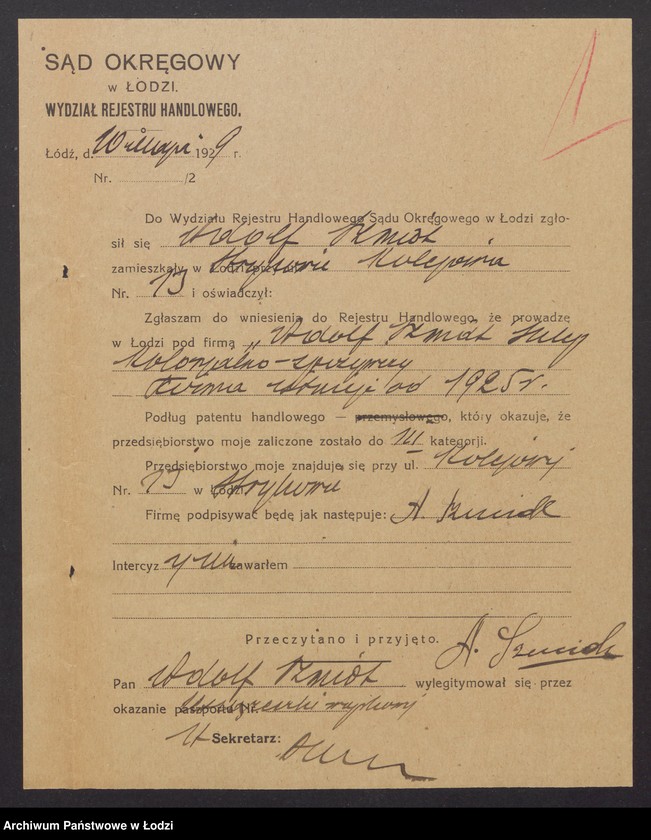 SĄD OKRĘGOWY
w ŁODZI.
WYDZIAŁ REJESTRU HANDLOWEGO.
Łódź, d. 10 maja 1929 r.
Nr. /2
Do Wydziału Rejestru Handlowego Sądu Okręgowego w Łodzi zgło-
sił się Adolf Szmidt
zamieszkały w Strykowie Kolejowa
Nr. 13 i oświadczył:
Zgłaszam do wniesienia do Rejestru Handlowego, że prowadzę
w Łodzi pod firmą „Adolf Szmidt Sklep
Kolonjalno-spożywczy
Firma istnieje od 1925 r.
Podług patentu handlowego — przemysłowego, który okazuje, że
przedsiębiorstwo moje zaliczone zostało do III kategorji.
Przedsiębiorstwo moje znajduje się przy ul. Kolejowej
Nr. 13 w Strykowie
Firmę podpisywać będę jak następuje: A. Szmidt
Intercyzy nie zawarłem
Przeczytano i przyjęto. A. Szmidt
Pan Adolf Szmidt wylegitymował się przez
okazanie paszportu Nr. książeczki wojskowej
Sekretarz:
Archiwum Państwowe w Łodzi